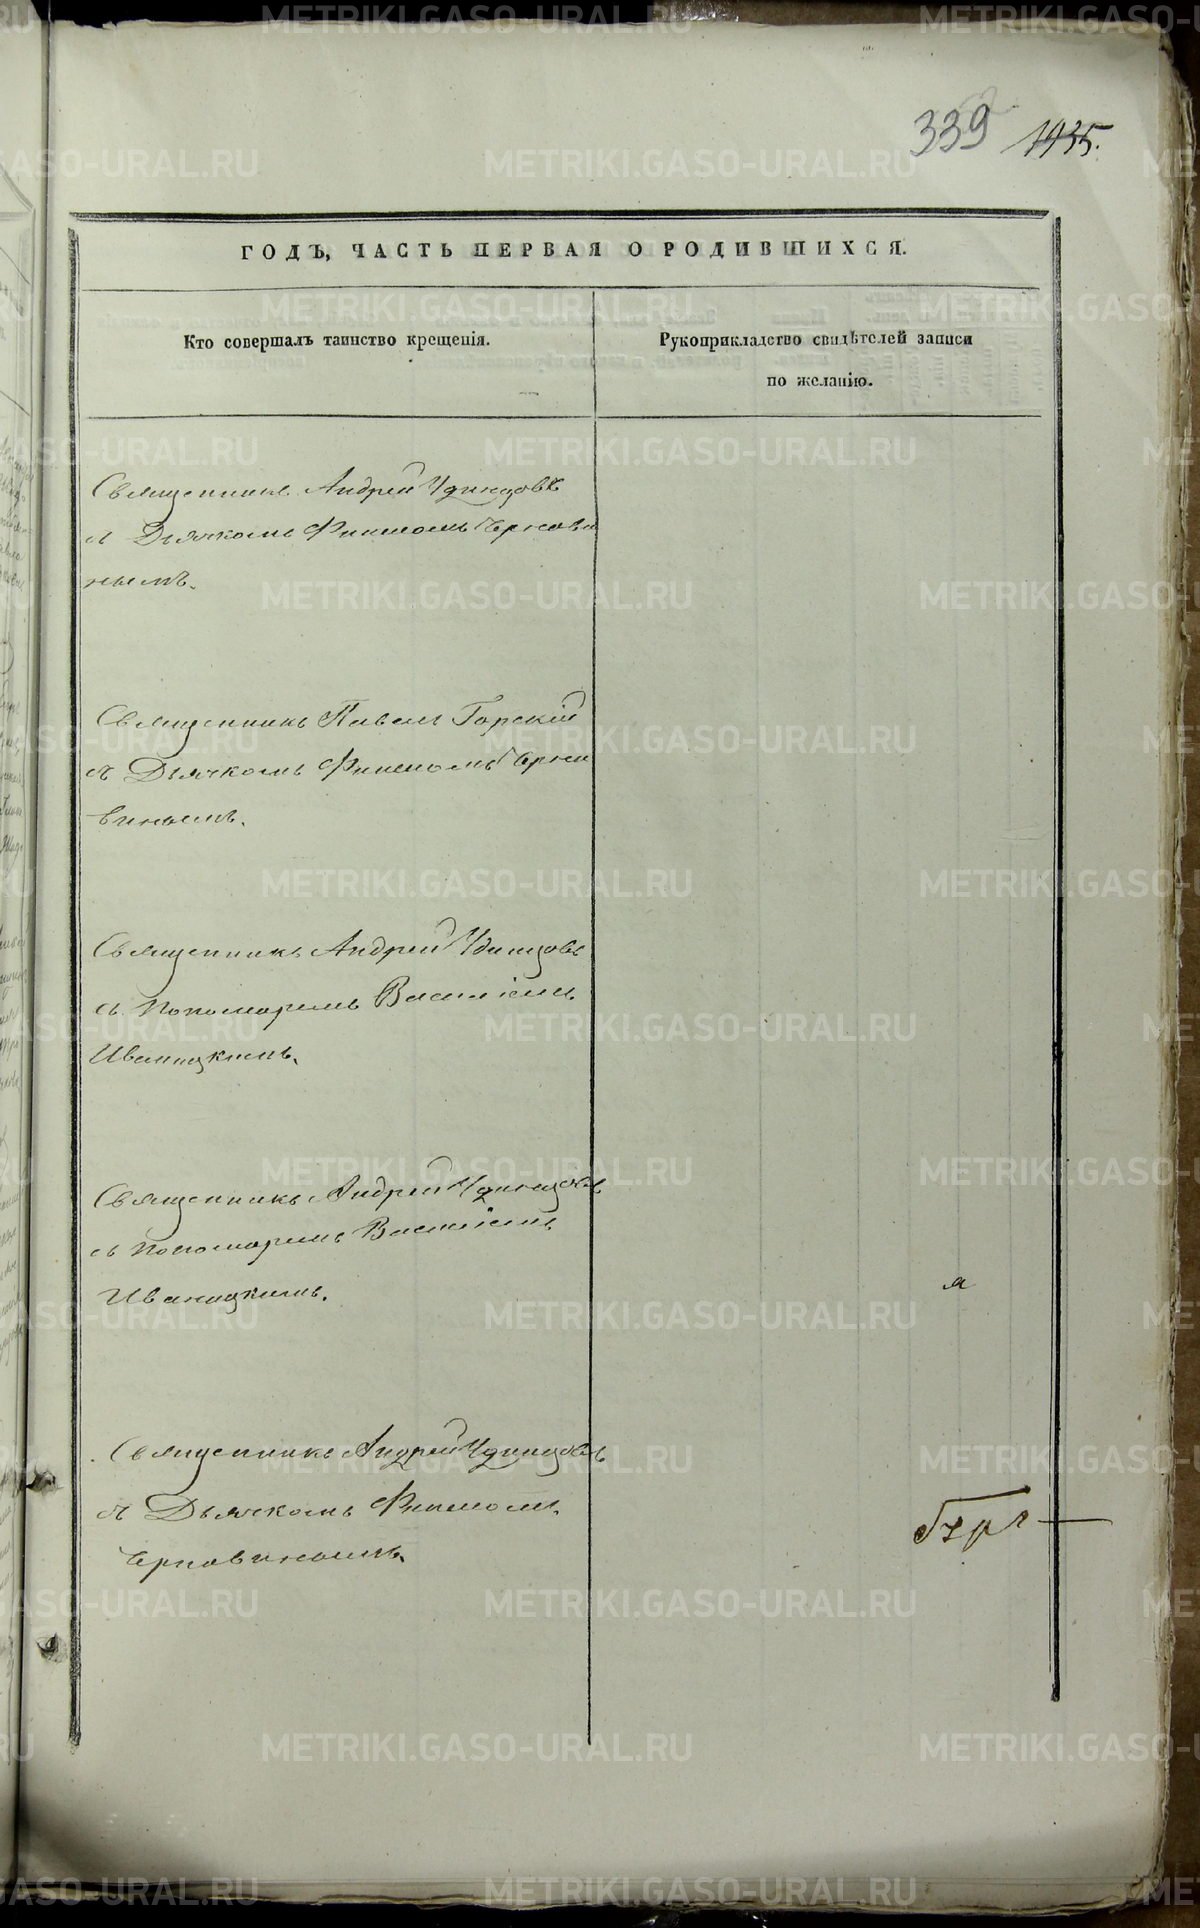 339 1935.
ГОДЪ, ЧАСТЬ ПЕРВАЯ О РОДИВШИХСЯ.
Кто совершалъ таинство крещенія.
Рукоприкладство свидѣтелей записи
по желанію.
Священникъ Андрей Удинцовъ
съ Дьячкомъ Филипомъ Чернави
нымъ.
Священникъ Павелъ Горскій
съ Дьячкомъ Филипомъ Черна
винымъ.
Священникъ Андрей Удинцовъ
съ Пономаремъ Василіемъ
Иваницкимъ.
Священникъ Андрей Удинцовъ
съ Пономаремъ Василіемъ
Иваницкимъ.
я
Священникъ Андрей Удинцовъ
съ Дьячкомъ Филипомъ
Чернавинымъ.
METRIKI.GASO-URAL.RU